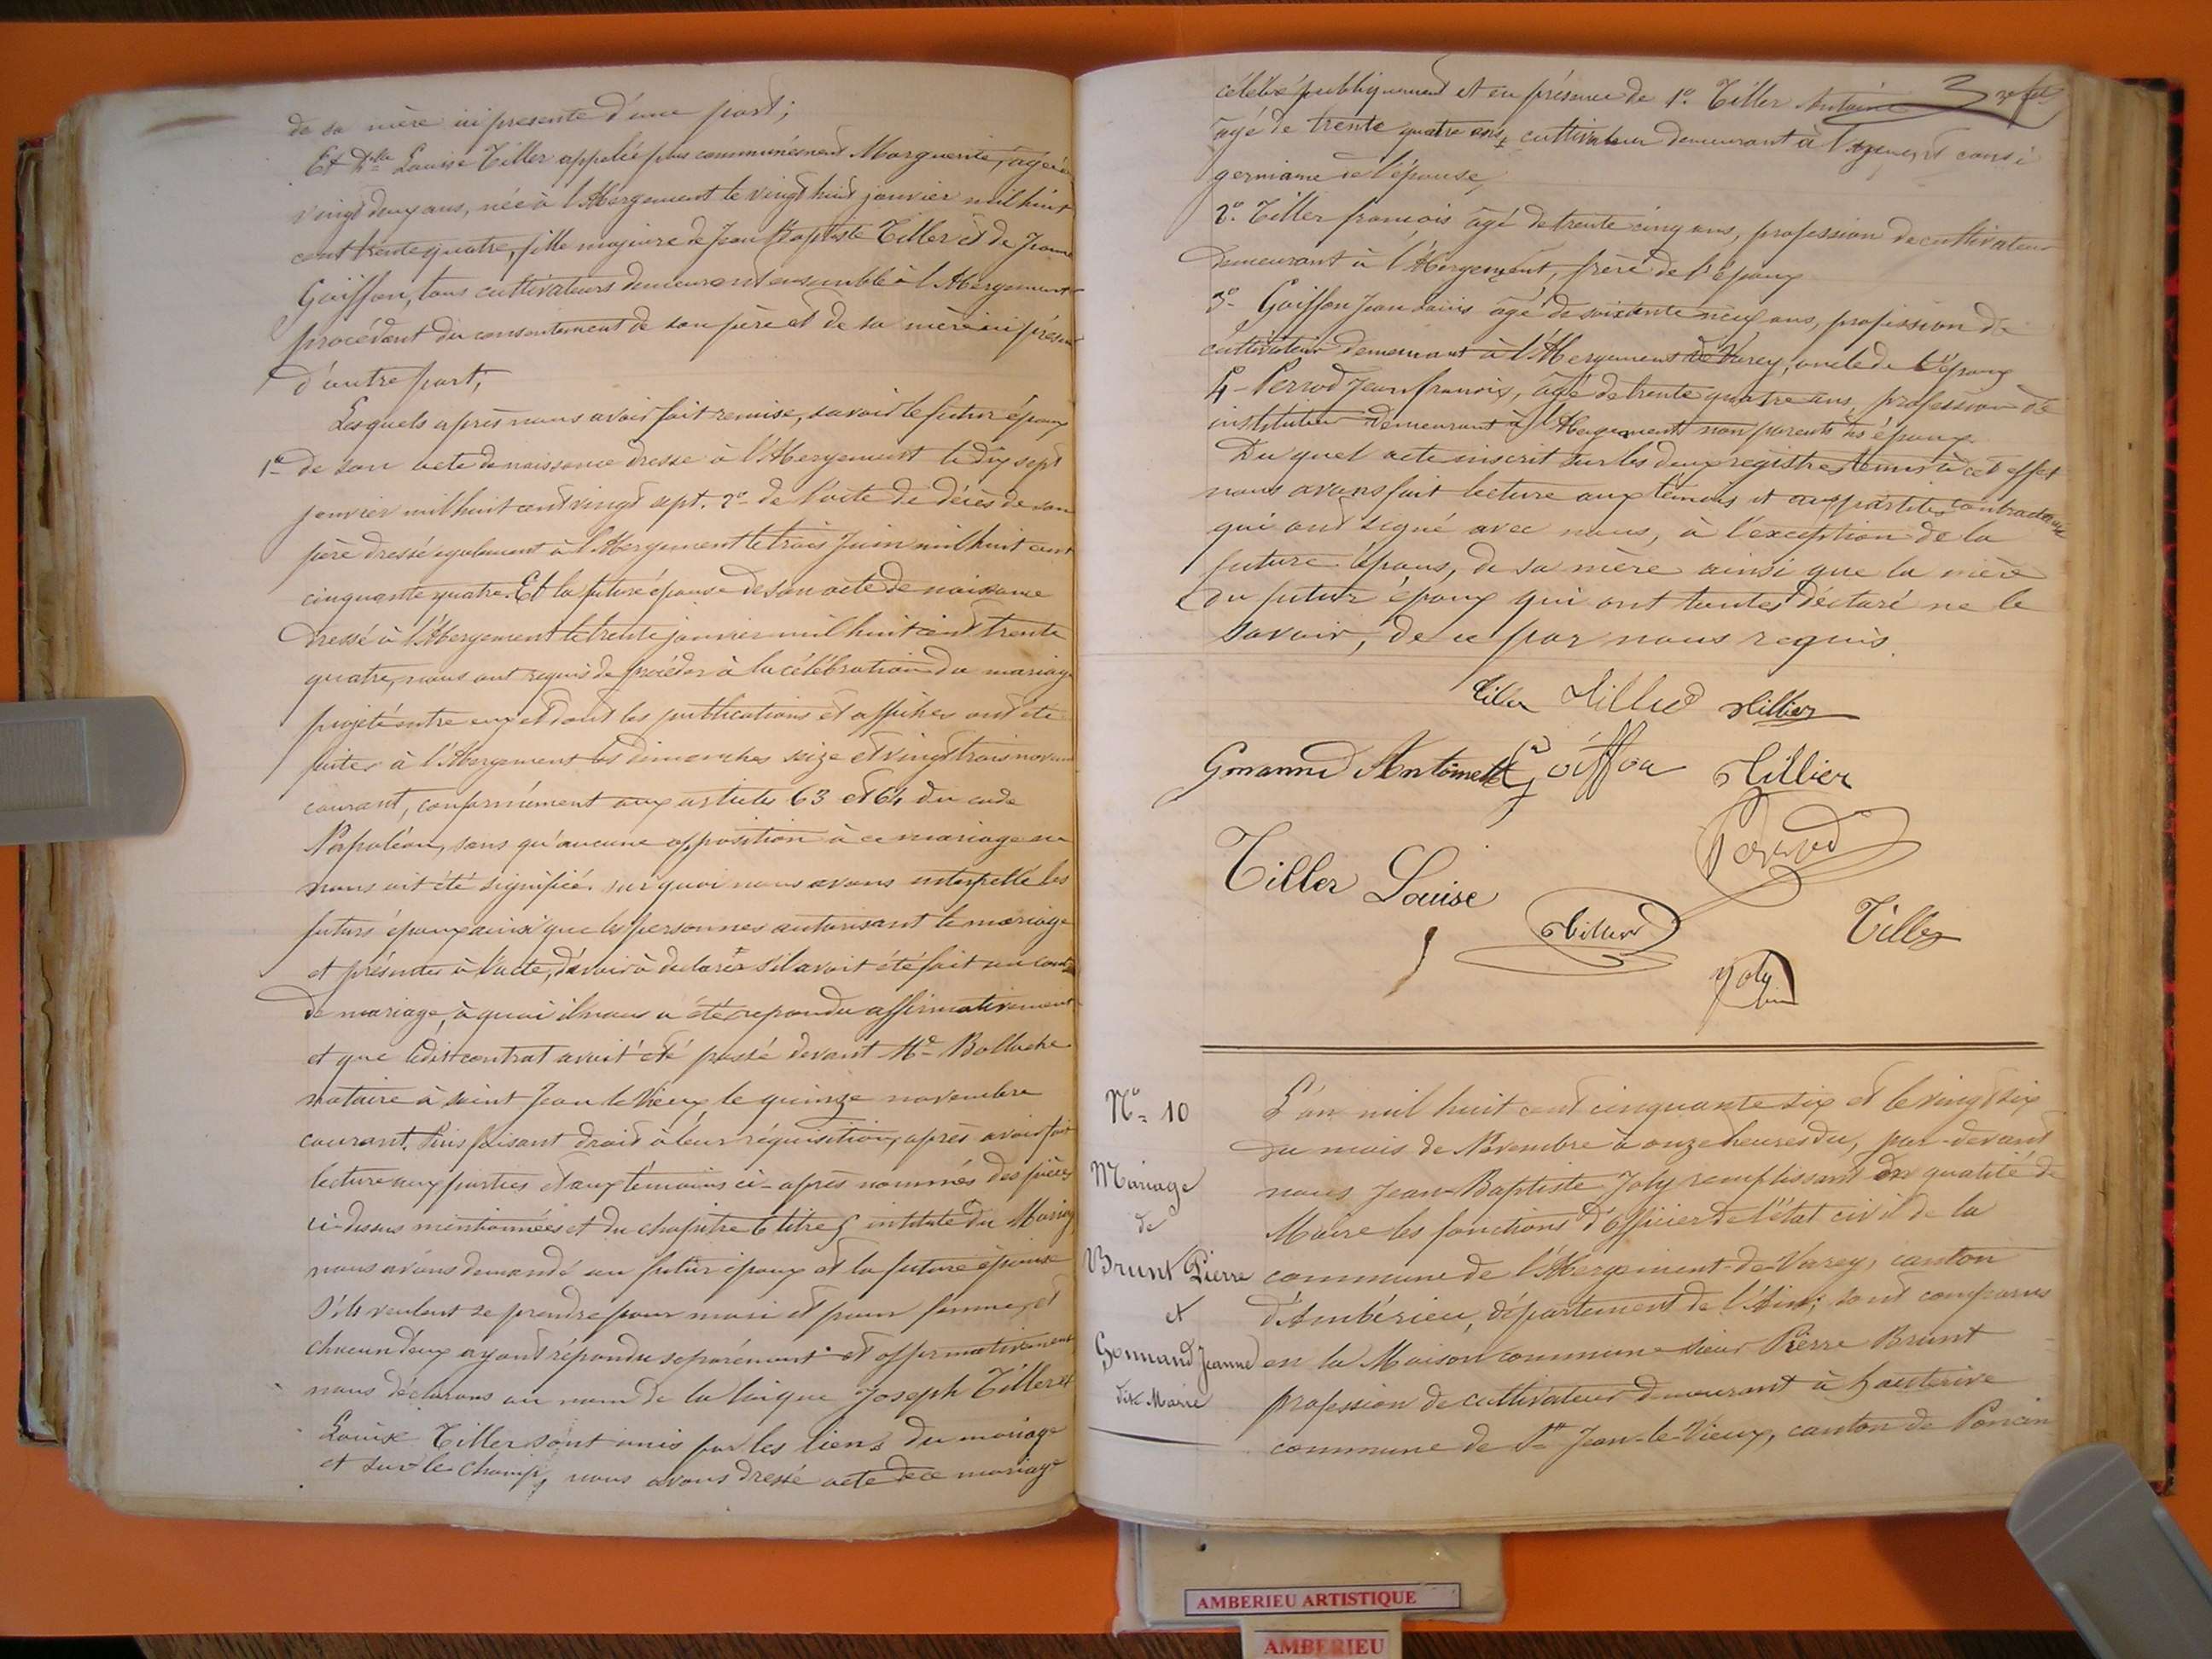 de sa mère ici presente d'une part;
Et Dlle Louise Tiller appelée plus communément Marguerite, agée de
vingt deux ans, née à l'Abergement le vingt huit janvier mil huit
cent trente quatre, fille majeure de Jean Baptiste Tiller et de Jeanne
Goiffon, tous cultivateurs demeurant ensemble à l'Abergement
procédant du consentement de son père et de sa mère ici présent
d'autre part,
Lesquels après nous avoir fait remise, savoir le futur époux
1º de son acte de naissance dressé à l'Abergement le dix sept
janvier mil huit cent vingt sept. 2º de l'acte de décès de son
père dressé également à l'Abergement le trois Juin mil huit cent
cinquante quatre. Et la future épouse de son acte de naissance
dressé à l'Abergement le trente janvier mil huit cent trente
quatre, nous ont requis de procéder à la célébration du mariage
projeté entre eux et dont les publications et affiches ont été
faites à l'Abergement les dimanches seize et vingt trois novembre
courant, conformément aux articles 63 et 64 du code
Napoléon, sans qu'aucune opposition à ce mariage ne
nous ait été signifié. sur quoi nous avons interpellé les
futurs époux ainsi que les personnes autorisant le mariage
et présentes à l'acte, d'avoir à declarer s'il avait été fait un contrat
de mariage, à quoi il nous a été repondu affirmativement
et que ledit contrat avait été passé devant Me Bolluche
notaire à saint Jean le Vieux, le quinze novembre
courant. Puis faisant droit à leur réquisition, après avoir fait
lecture aux parties et aux témoins ci-après nommés des pièces
ci-dessus mentionnées et du chapitre 6 titre 5 intitulé du Mariage
nous avons demandé au futur époux et la future épouse
s'ils veulent se prendre pour mari et pour femme, et
chacun d'eux ayant répondu séparément et affirmativement
nous déclarons au nom de la loi que Joseph Tiller et
Louise Tiller sont unis par les liens du mariage
et sur le champ, nous avons dressé acte de ce mariage
célébré publiquement et en présence de 1º. Tiller Antoine
3
agé de trente quatre ans, cultivateur demeurant à l'Abergement cousi
germaine de l'épouse,
2º. Tiller françois agé de trente cinq ans, profession de cultivateur
demeurant à l'Abergement, frère de l'époux
3º Goiffon Jean Louis agé de soixante neuf ans, profession de
cultivateur demeurant à l'Abergement de Varey, oncle de l'époux
4 - Perrod Jean françois, agé de trente quatre ans, profession de
instituteur demeurant à l'Abergement non parents des époux.
Du quel acte inscrit sur les deux registres tenus à cet effet
nous avons fait lecture aux témoins et aux parties contractantes
qui ont signé avec nous, à l'exception de la
future épouse, de sa mère ainsi que la mère
du futur époux qui ont toutes déclaré ne le
savoir, de ce par nous requis.
Tiller Tiller Tillier
Gonannd Antoinette Goiffon Tillier
Perrod
Tiller Louise
Tiller Tiller
Joly
Nº 10
Mariage
de
Brunt Pierre
et
Gonnand Jeanne
dite Marie
L'an mil huit cent cinquante six et le vingt six
du mois de Novembre à onze heures du, par-devant
nous Jean-Baptiste Joly remplissant en qualité de
Maire les fonctions d'officier de l'état civil de la
commune de l'Abergement-de-Varey, canton
d'Ambérieu, département de l'Ain; sont comparus
en la Maison commune sieur Pierre Brunt
profession de cultivateur demeurant à hauterive
commune de St Jean-le-Vieux, canton de Poncin
AMBERIEU ARTISTIQUE
AMBERIEU